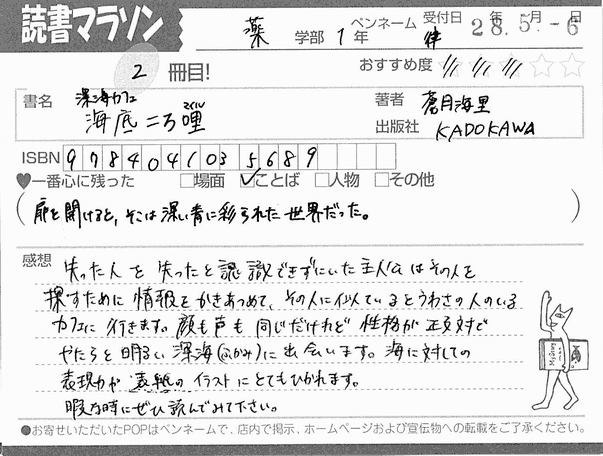 読書マラソン
薬 学部 1年 ペンネーム 律 受付日 28年5月-6日
2冊目!
おすすめ度 ☆☆☆☆☆
書名 深海カフェ
海底二万哩
著者 蒼月海里
出版社 KADOKAWA
ISBN 9784041035689
♥一番心に残った □場面 ☑ことば □人物 □その他
(扉を開けると、そこは深い青に彩られた世界だった。)
感想
失った人を失ったと認識できずにいた主人公はその人を
探すために情報をかきあつめて、その人に似ているとうわさの人のいる
カフェに行きます。顔も声も同じだけれど性格が正反対で
やたらと明るい深海(ふかみ)に出会います。海に対しての
表現力が表紙のイラストにとてもひかれます。
暇な時にぜひ読んでみて下さい。
●お寄せいただいたPOPはペンネームで、店内で掲示、ホームページおよび宣伝物への転載をご了承ください。